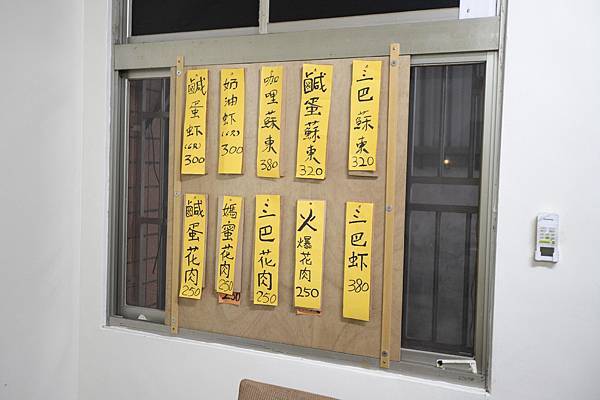 鹹蛋虾(6只)300
奶油虾(6只)300
咖哩蘇東380
鹹蛋蘇東320
三巴蘇東320
鹹蛋花肉250
媽蜜花肉250
三巴花肉250
火爆花肉250
三巴虾380